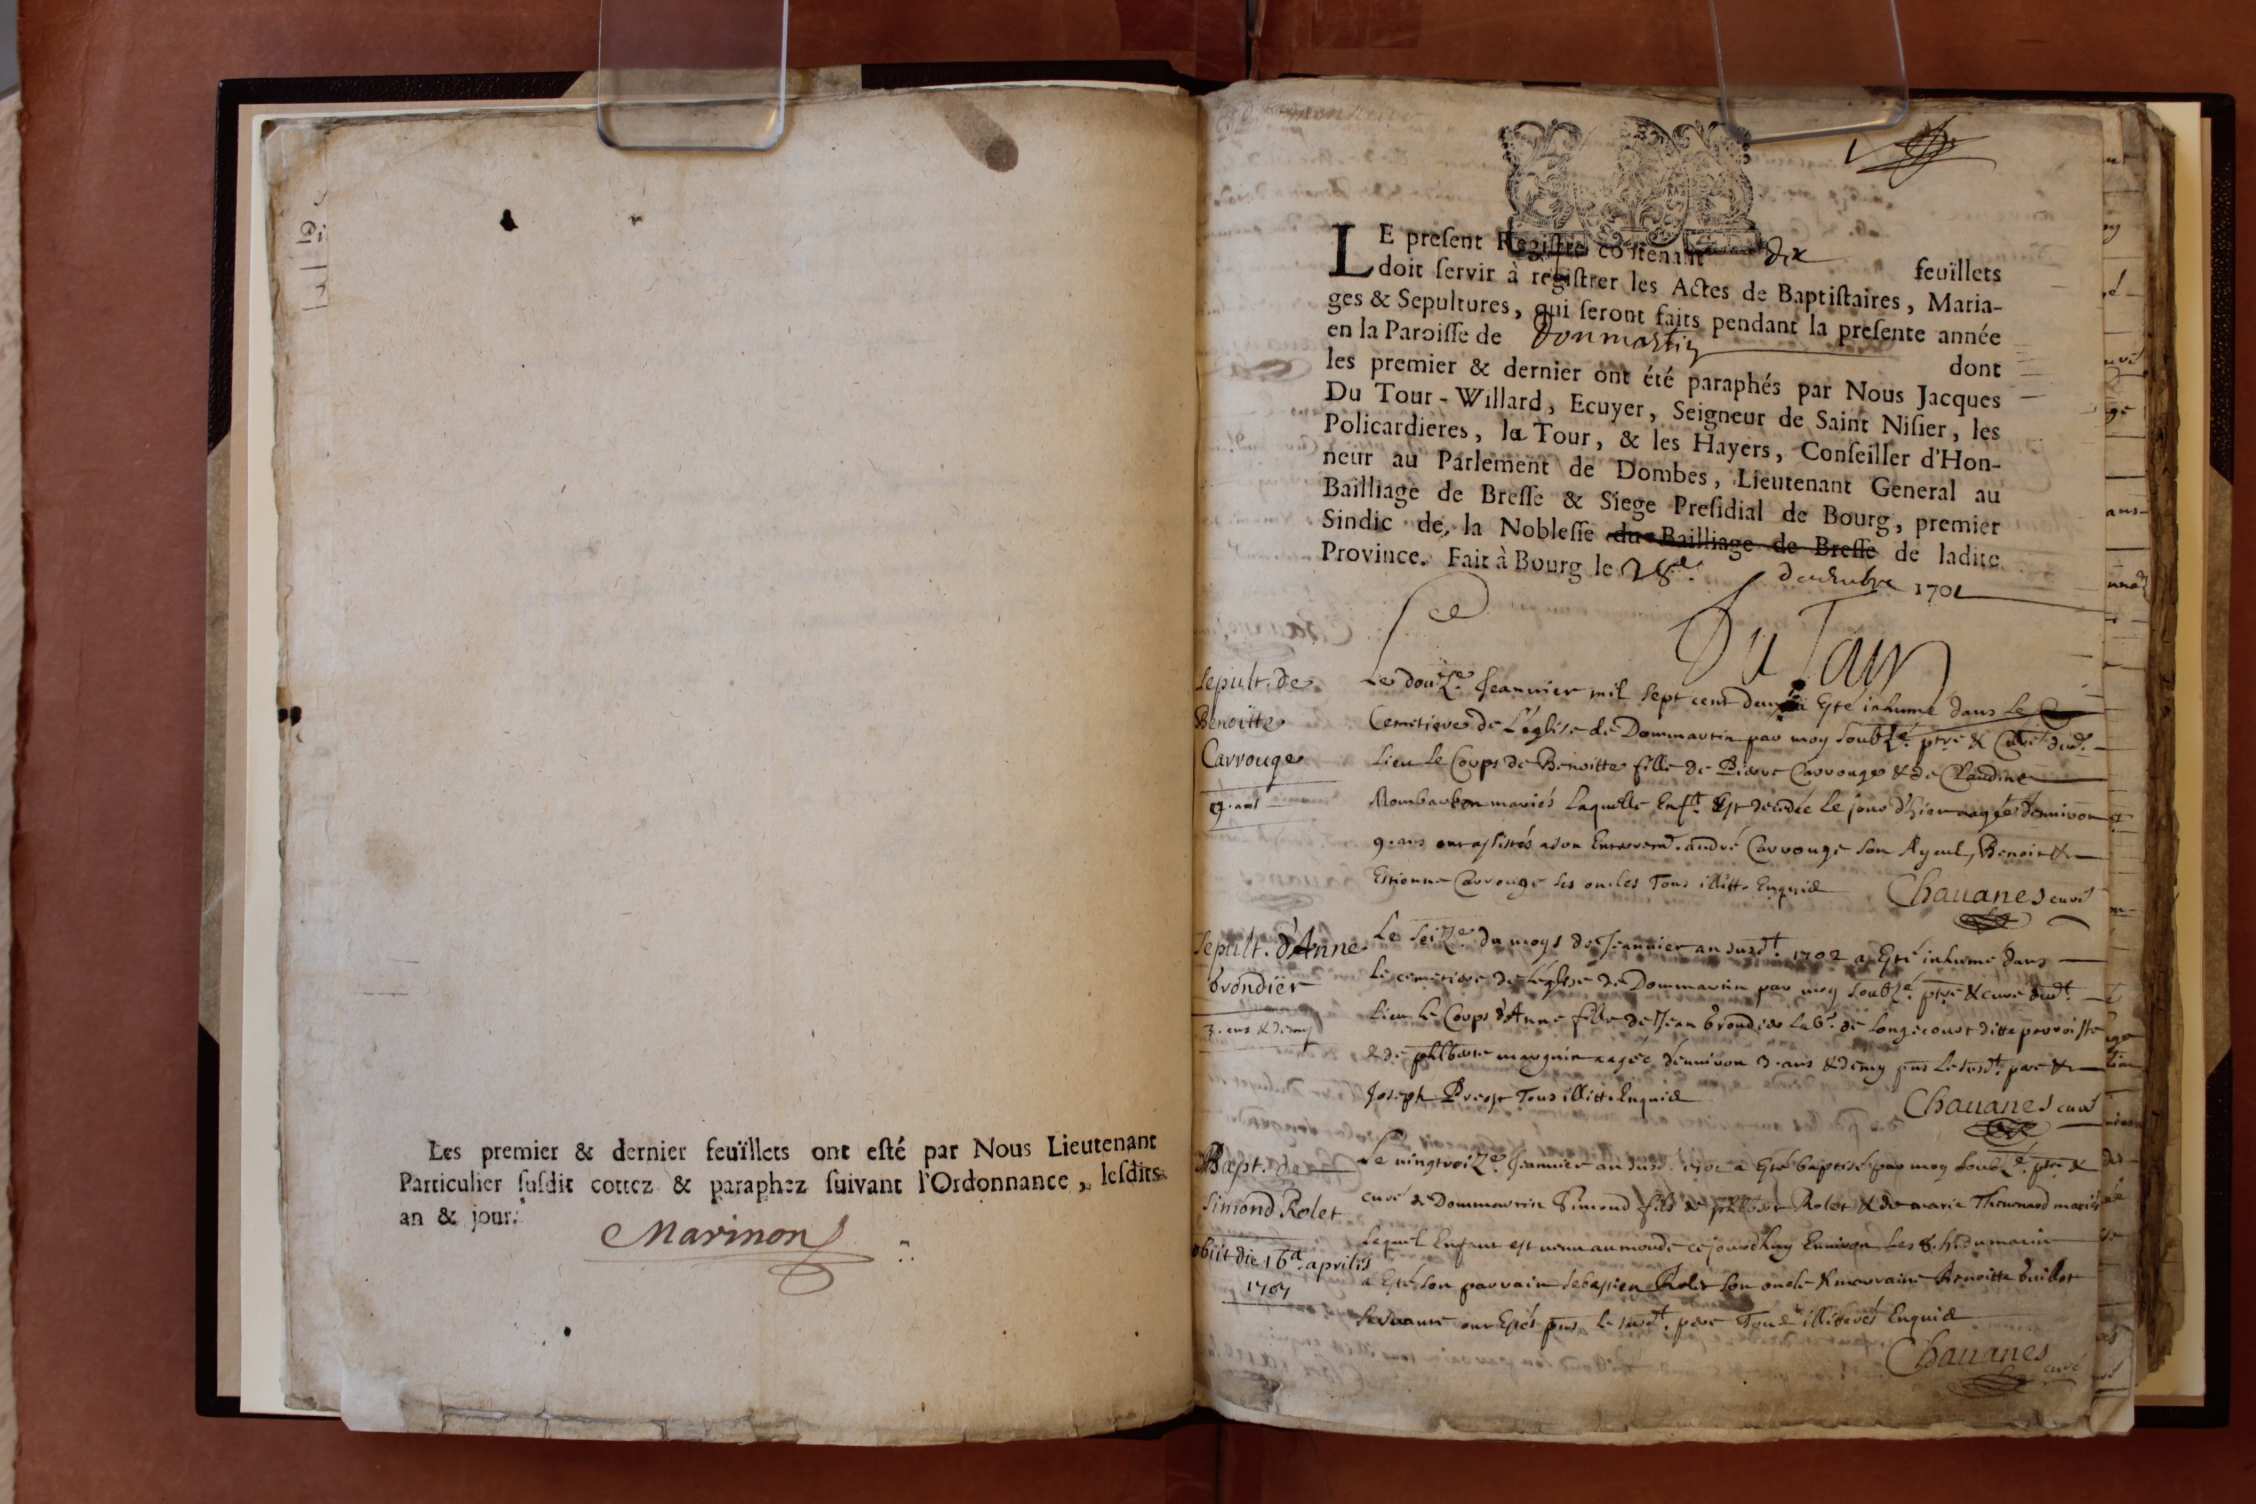 Les premier & dernier feuïllets ont esté par Nous Lieutenant
Particulier susdit cottez & paraphez suivant l'Ordonnance, lesdits
an & jour.
Marinon
LE present Registre cõtenant dix feuïllets
doit servir à registrer les Actes de Baptistaires, Maria-
ges & Sepultures, qui seront faits pendant la presente année
en la Paroisse de Donmartin dont
les premier & dernier ont été paraphés par Nous Jacques
Du Tour-Willard, Ecuyer, Seigneur de Saint Nisier, les
Policardieres, la Tour, & les Hayers, Conseiller d'Hon-
neur au Parlement de Dombes, Lieutenant General au
Bailliage de Bresse & Siege Presidial de Bourg, premier
Sindic de la Noblesse du Bailliage de Bresse de ladite
Province. Fait à Bourg le 28e. decembre 1701
Du Tour
Sepult. de
Benoitte
Carrouge
9. ans
Le douze Jeanvier mil sept cent deux a Esté inhumé dans le
Cemetiere de L'église de Dommartin par moy soubzé. ptre & Curé dud.
Lieu le Corps de Benoitte fille de Pierre Carrouge & de Claudine
Mombarbon mariés Laquelle Enft. Est décédée Le jour d'hier aagée d'environ
9. ans ont assistés a son Enterremt. andré Carrouge son Ayeul, Benoit &
Estienne Carrouge ses oncles Tous illitt. Enquis
Chauanes curé
Sepult. d'Anne
brondier
3. ans & demy
Le seize du moys de Jeanvier an susdt. 1702 a Esté inhumé dans
Le cemetiere de L'église de Dommartin par moy soubzé. ptre & curé dudt.
Lieu Le Corps d'Anne fille de Jean brondier Labr. de Longecourt ditte parroisse
& de philberte marguin aagée d'environ 3. ans & demy pns Le susdt. pere &
Joseph Prost Tous illitt. Enquis
Chauanes curé
Bapt. de
Simond Rolet
obiit die 16a. aprilis
1707
Le vingtroize Jeanvier an susd. 1702 a Esté baptisé par moy soubzé. ptre &
curé de Dommartin Simond fils de philibert Rolet & de marie Thevenard mariés
Lequel Enfant est venu au monde ce jourdhuy Environ Les 8. h. du matin
a Esté son parrain sebastien Rolet son oncle & marraine Benoitte buillet
servante ont Estés pns Le susdt. pere Tous illiterés Enquis
Chauanes curé